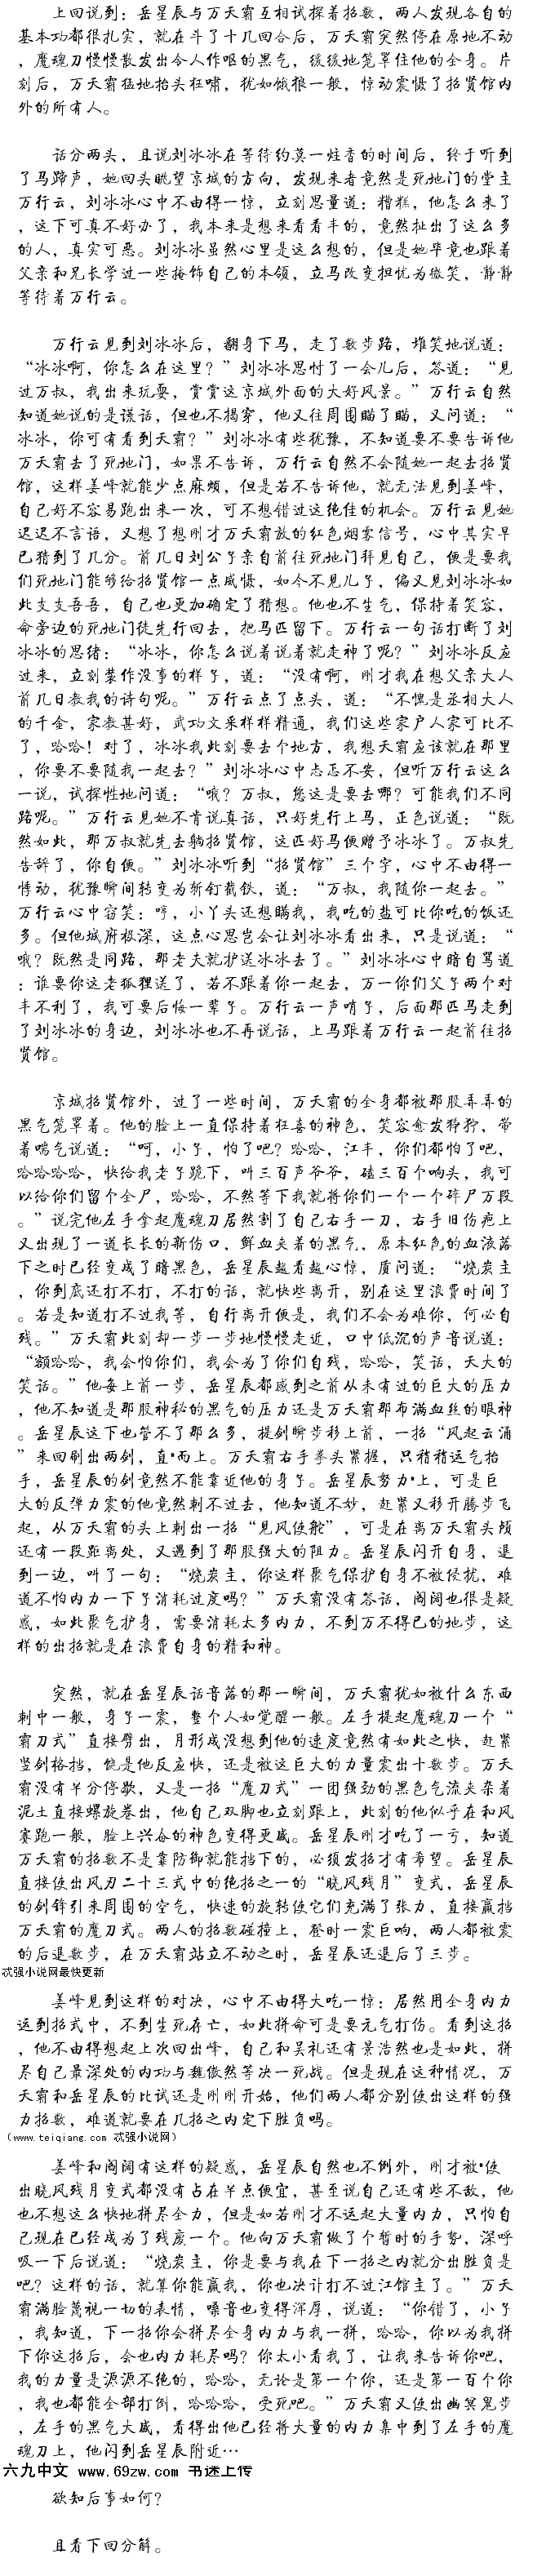 上回说到：岳星辰与万天霸互相试探着招数，两人发现各自的
基本功都很扎实，就在斗了十几回合后，万天霸突然停在原地不动
，魔魂刀慢慢散发出令人作呕的黑气，缓缓地笼罩住他的全身。片
刻后，万天霸猛地抬头狂啸，犹如饿狼一般，惊动震慑了招贤馆内
外的所有人。
话分两头，且说刘冰冰在等待约莫一炷香的时间后，终于听到
了马蹄声，她回头眺望京城的方向，发现来者竟然是死地门的堂主
万行云，刘冰冰心中不由得一惊，立刻思量道：糟糕，他怎么来了
，这下可真不好办了，我本来是想来看看丰的，竟然扯出了这么多
的人，真实可恶。刘冰冰虽然心里是这么想的，但是她毕竟也跟着
父亲和兄长学过一些掩饰自己的本领，立马改变担忧为微笑，静静
等待着万行云。
万行云见到刘冰冰后，翻身下马，走了数步路，堆笑地说道：
“冰冰啊，你怎么在这里？”刘冰冰思忖了一会儿后，答道：“见
过万叔，我出来玩耍，赏赏这京城外面的大好风景。”万行云自然
知道她说的是谎话，但也不揭穿，他又往周围瞄了瞄，又问道：“
冰冰，你可有看到天霸？”刘冰冰有些犹豫，不知道要不要告诉他
万天霸去了死地门，如果不告诉，万行云自然不会随她一起去招贤
馆，这样姜峰就能少点麻烦，但是若不告诉他，就无法见到姜峰，
自己好不容易跑出来一次，可不想错过这绝佳的机会。万行云见她
迟迟不言语，又想了想刚才万天霸放的红色烟雾信号，心中其实早
已猜到了几分。前几日刘公子亲自前往死地门拜见自己，便是要我
们死地门能够给招贤馆一点威慑，如今不见儿子，偏又见刘冰冰如
此支支吾吾，自己也更加确定了猜想。他也不生气，保持着笑容，
命旁边的死地门徒先行回去，把马匹留下。万行云一句话打断了刘
冰冰的思绪：“冰冰，你怎么说着说着就走神了呢？”刘冰冰反应
过来，立刻装作没事的样子，道：“没有啊，刚才我在想父亲大人
前几日教我的诗句呢。”万行云点了点头，道：“不愧是丞相大人
的千金，家教甚好，武功文采样样精通，我们这些家户人家可比不
了，哈哈！对了，冰冰我此刻要去个地方，我想天霸应该就在那里
，你要不要随我一起去？”刘冰冰心中忐忑不安，但听万行云这么
一说，试探性地问道：“哦？万叔，您这是要去哪？可能我们不同
路呢。”万行云见她不肯说真话，只好先行上马，正色说道：“既
然如此，那万叔就先去躺招贤馆，这匹好马便赠予冰冰了。万叔先
告辞了，你自便。”刘冰冰听到“招贤馆”三个字，心中不由得一
悸动，犹豫瞬间转变为斩钉截铁，道：“万叔，我随你一起去。”
万行云心中窃笑：哼，小丫头还想瞒我，我吃的盐可比你吃的饭还
多。但他城府极深，这点心思岂会让刘冰冰看出来，只是说道：“
哦？既然是同路，那老夫就护送冰冰去了。”刘冰冰心中暗自骂道
：谁要你这老狐狸送了，若不跟着你一起去，万一你们父子两个对
丰不利了，我可要后悔一辈子。万行云一声哨子，后面那匹马走到
了刘冰冰的身边，刘冰冰也不再说话，上马跟着万行云一起前往招
贤馆。
京城招贤馆外，过了一些时间，万天霸的全身都被那股弄弄的
黑气笼罩着。他的脸上一直保持着狂喜的神色，笑容愈发狰狞，带
着喘气说道：“呵，小子，怕了吧？哈哈，江丰，你们都怕了吧，
哈哈哈哈，快给我老子跪下，叫三百声爷爷，磕三百个响头，我可
以给你们留个全尸，哈哈，不然等下我就将你们一个一个碎尸万段
。”说完他左手拿起魔魂刀居然割了自己右手一刀，右手旧伤疤上
又出现了一道长长的新伤口，鲜血夹着的黑气，原本红色的血液落
下之时已经变成了暗黑色，岳星辰越看越心惊，质问道：“烧炭主
，你到底还打不打，不打的话，就快些离开，别在这里浪费时间了
。若是知道打不过我等，自行离开便是，我们不会为难你，何必自
残。”万天霸此刻却一步一步地慢慢走近，口中低沉的声音说道：
“额哈哈，我会怕你们，我会为了你们自残，哈哈，笑话，天大的
笑话。”他每上前一步，岳星辰都感到之前从未有过的巨大的压力
，他不知道是那股神秘的黑气的压力还是万天霸那布满血丝的眼神
。岳星辰这下也管不了那么多，提剑瞬步移上前，一招“风起云涌
”来回刷出两剑，直·而上。万天霸右手拳头紧握，只稍稍运气抬
手，岳星辰的剑竟然不能靠近他的身子。岳星辰努力·上，可是巨
大的反弹力震的他竟然刺不过去，他知道不妙，赶紧又移开腾步飞
起，从万天霸的头上刺出一招“见风使舵”，可是在离万天霸头颅
还有一段距离处，又遇到了那股强大的阻力。岳星辰闪开自身，退
到一边，叫了一句：“烧炭主，你这样聚气保护自身不被侵扰，难
道不怕内力一下子消耗过度吗？”万天霸没有答话，阔阔也很是疑
惑，如此聚气护身，需要消耗太多内力，不到万不得已的地步，这
样的出招就是在浪费自身的精和神。
突然，就在岳星辰话音落的那一瞬间，万天霸犹如被什么东西
刺中一般，身子一震，整个人如觉醒一般。左手提起魔魂刀一个“
霸刀式”直接劈出，月形成没想到他的速度竟然有如此之快，赶紧
竖剑格挡，饶是他反应快，还是被这巨大的力量震出十数步。万天
霸没有半分停歇，又是一招“魔刀式”一团强劲的黑色气流夹杂着
泥土直接螺旋卷出，他自己双脚也立刻跟上，此刻的他似乎在和风
赛跑一般，脸上兴奋的神色变得更盛。岳星辰刚才吃了一亏，知道
万天霸的招数不是靠防御就能挡下的，必须发招才有希望。岳星辰
直接使出风刃二十三式中的绝招之一的“晓风残月”变式，岳星辰
的剑锋引来周围的空气，快速的旋转使它们充满了张力，直接赢挡
万天霸的魔刀式。两人的招数碰撞上，登时一震巨响，两人都被震
的后退数步，在万天霸站立不动之时，岳星辰还退后了三步。
忒强小说网最快更新
姜峰见到这样的对决，心中不由得大吃一惊：居然用全身内力
运到招式中，不到生死存亡，如此拼命可是要元气打伤。看到这招
，他不由得想起上次回出峰，自己和吴礼还有景浩然也是如此，拼
尽自己最深处的内功与魏傲然等决一死战。但是现在这种情况，万
天霸和岳星辰的比试还是刚刚开始，他们两人都分别使出这样的强
力招数，难道就要在几招之内定下胜负吗。
（www.teiqiang.com 忒强小说网）
姜峰和阔阔有这样的疑惑，岳星辰自然也不例外，刚才被·使
出晓风残月变式都没有占在半点便宜，甚至说自己还有些不敌，他
也不想这么快地拼尽全力，但是如若刚才不运起大量内力，只怕自
己现在已经成为了残废一个。他向万天霸做了个暂时的手势，深呼
吸一下后说道：“烧炭主，你是要与我在下一招之内就分出胜负是
吧？这样的话，就算你能赢我，你也决计打不过江馆主了。”万天
霸满脸蔑视一切的表情，嗓音也变得浑厚，说道：“你错了，小子
，我知道，下一招你会拼尽全身内力与我一拼，哈哈，你以为我拼
下你这招后，会也内力耗尽吗？你太小看我了，让我来告诉你吧，
我的力量是源源不绝的，哈哈，无论是第一个你，还是第一百个你
，我也都能全部打倒，哈哈哈，受死吧。”万天霸又使出幽冥鬼步
，左手的黑气大盛，看得出他已经将大量的内力集中到了左手的魔
魂刀上，他闪到岳星辰附近…
六九中文 www.69zw.com 书迷上传
欲知后事如何？
且看下回分解。